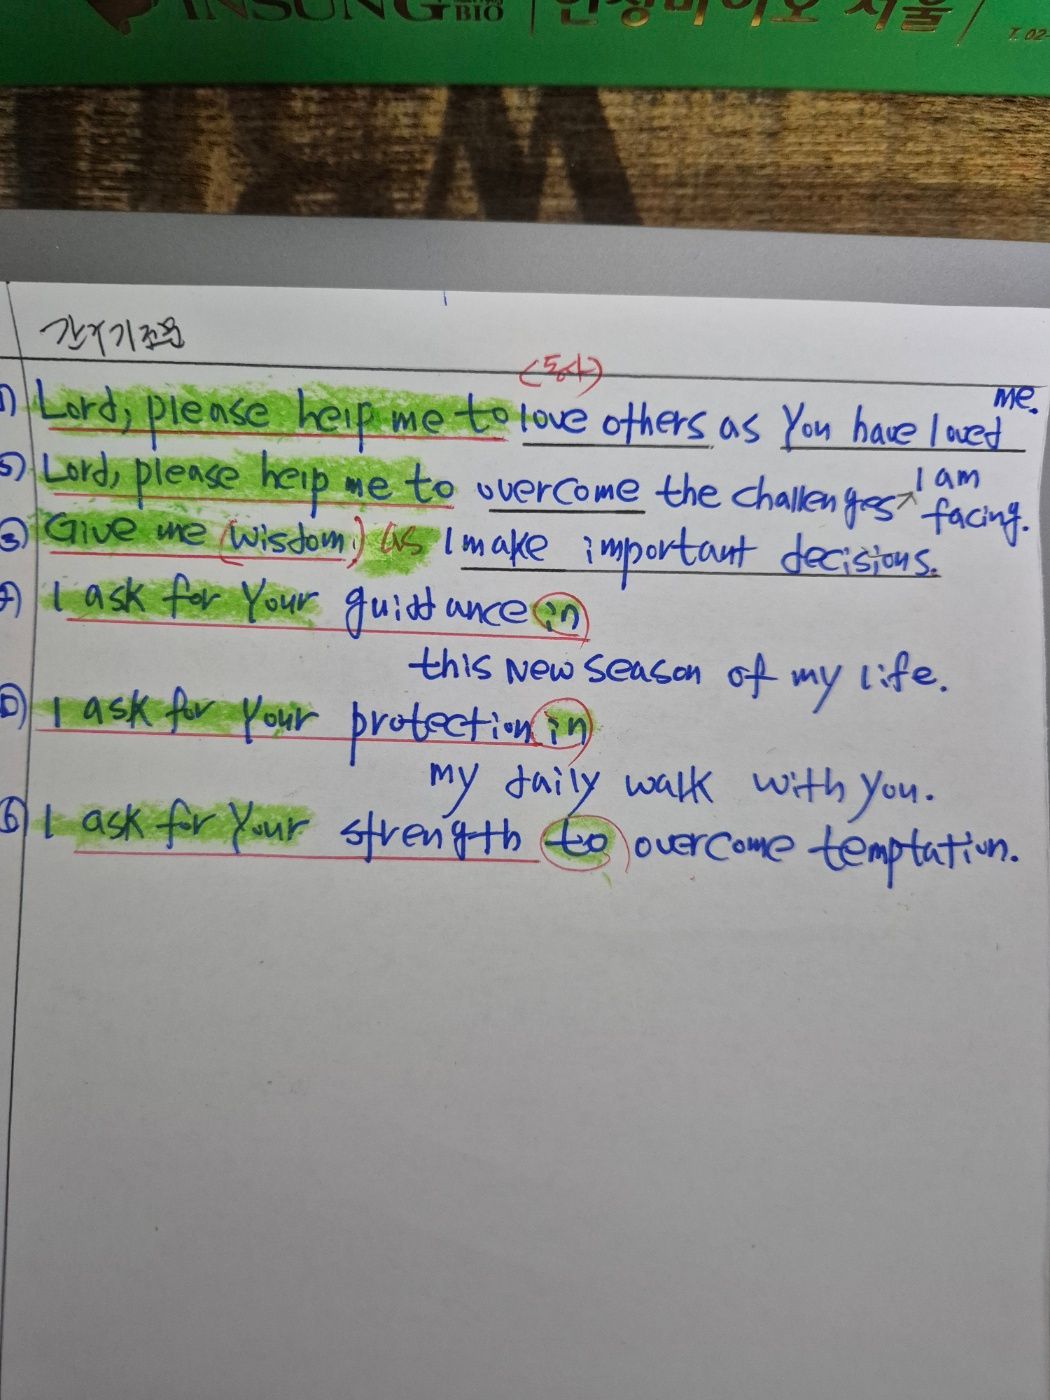 INSUNG BIO | 인성바이오 서울
T. 02-
(동사)
1) Lord, please help me to love others as You have loved me.
5) Lord, please help me to overcome the challenges I am facing.
3) Give me (wisdom) as I make important decisions.
I ask for Your guidance in
this New season of my life.
I ask for Your protection in
my daily walk with You.
6) I ask for Your strength to overcome temptation.